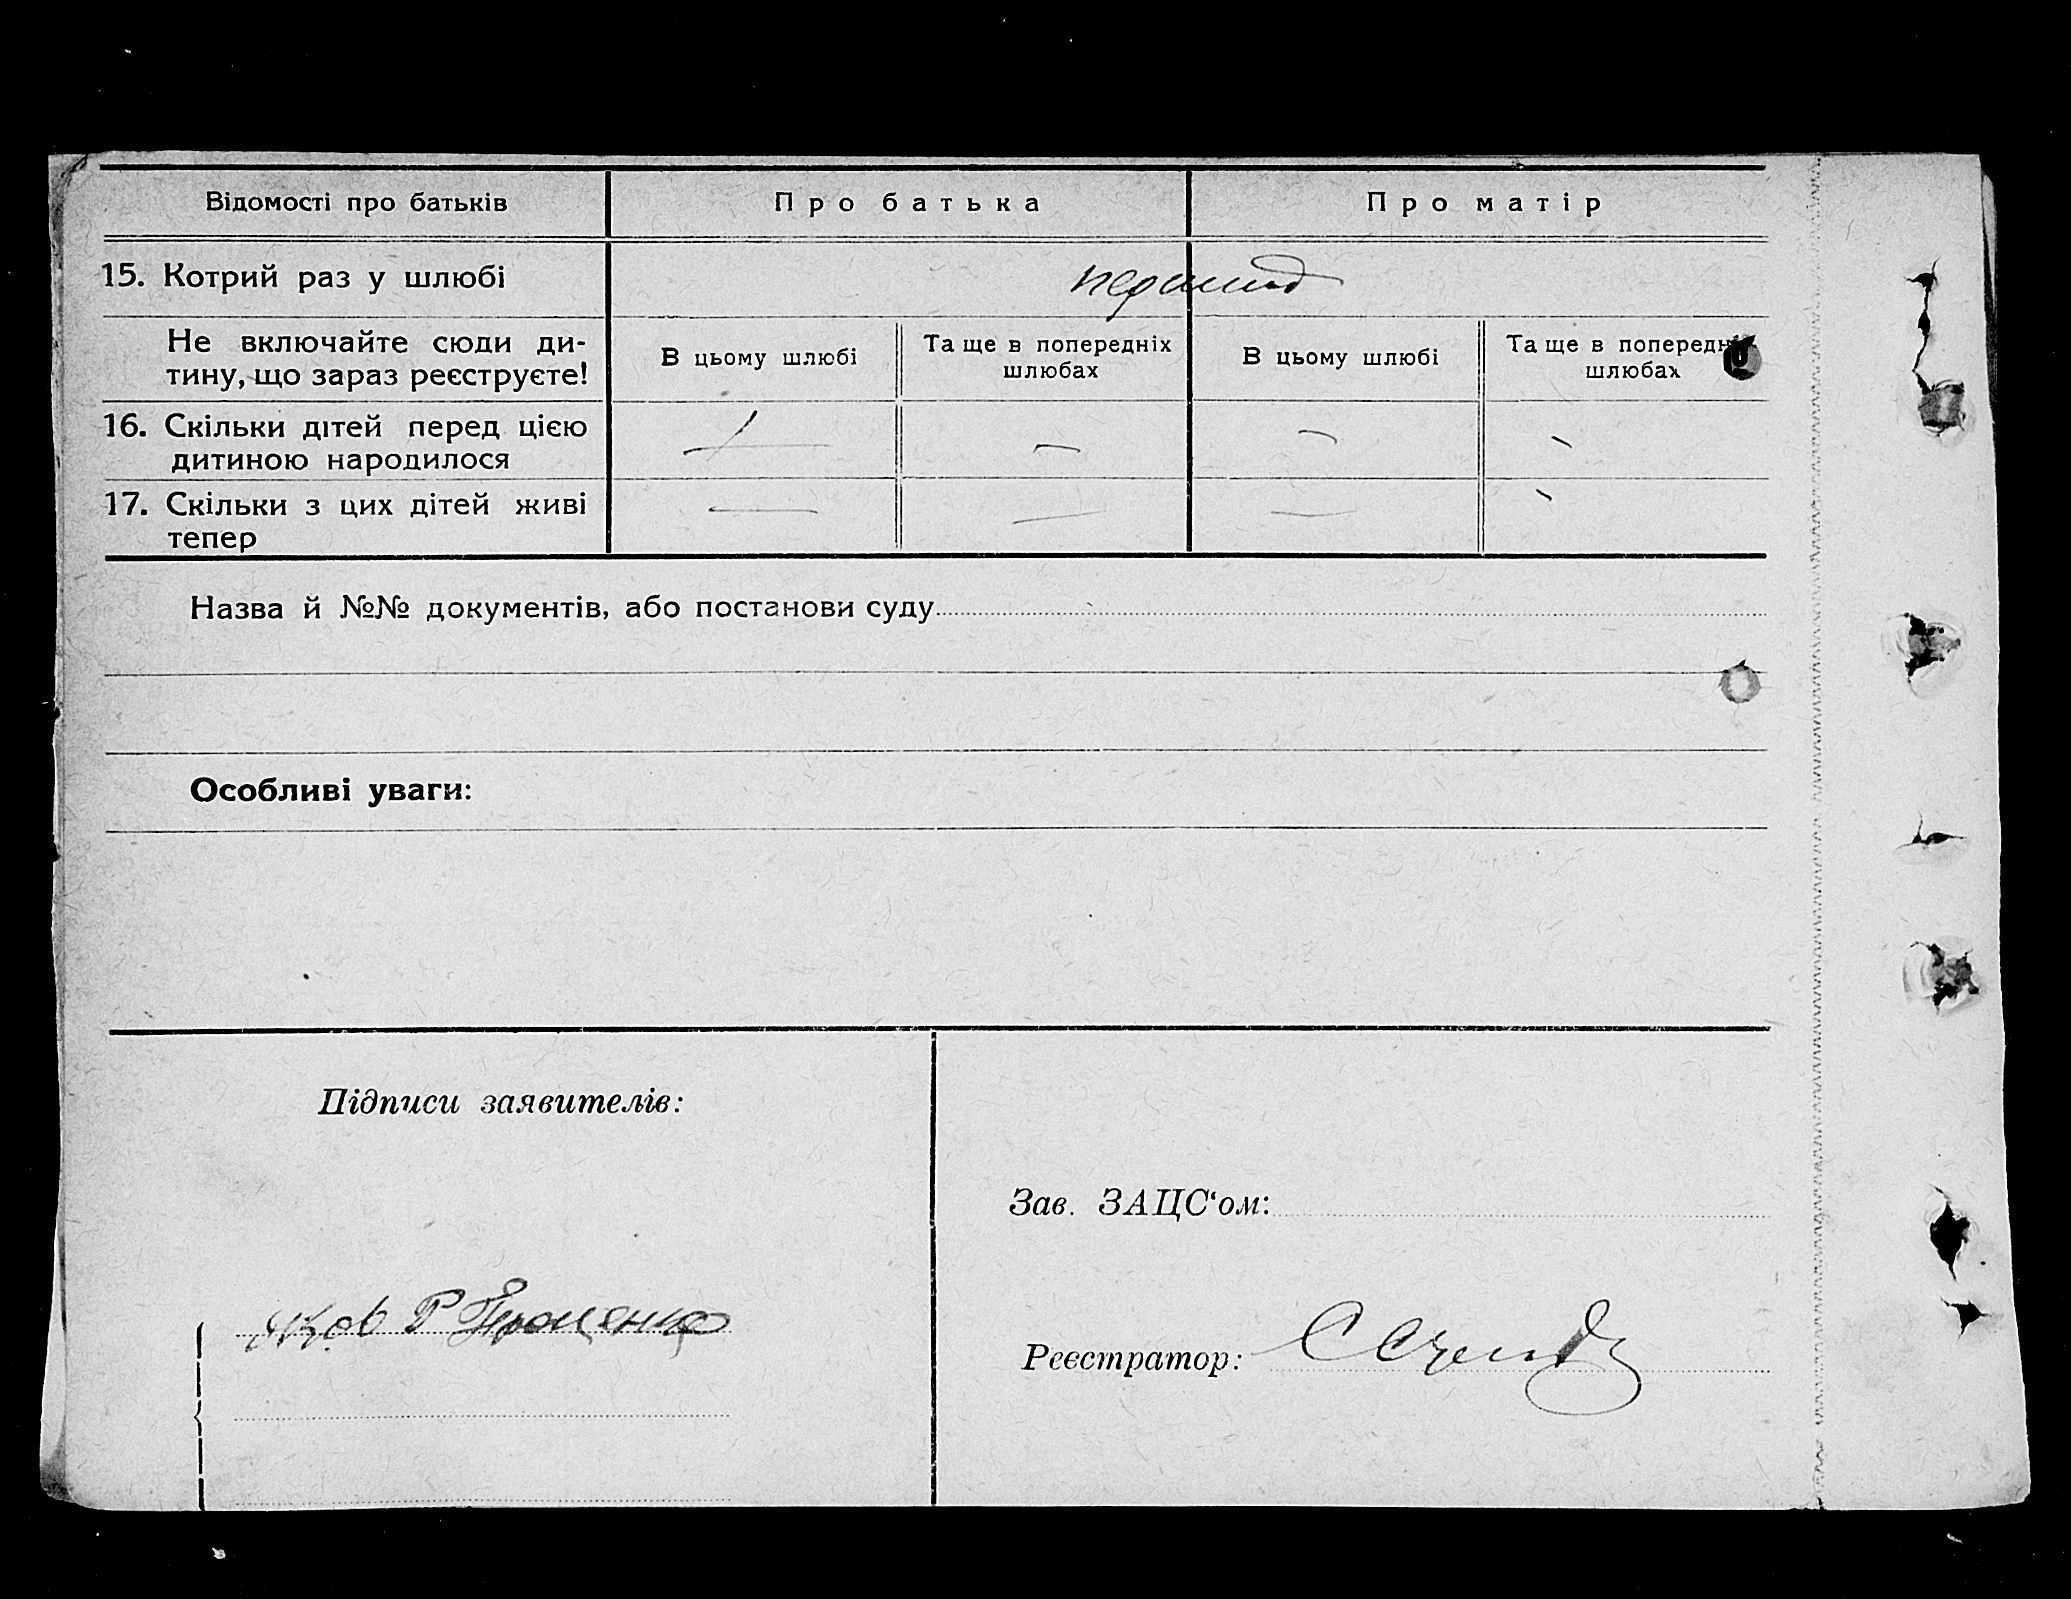 Відомості про батьків Про батька Про матір
15. Котрий раз у шлюбі
Не включайте сюди ди-
тину, що зараз реєструєте!
В цьому шлюбі
Та ще в попередніх
шлюбах
В цьому шлюбі
Та ще в попередніх
шлюбах
16. Скільки дітей перед цією
дитиною народилося — — — —
17. Скільки з цих дітей живі
тепер — — — —
Назва й №№ документів, або постанови суду
Особливі уваги:
Підписи заявителів:
Яков Р Проценко
Зав. ЗАЦС‘ом:
Реєстратор: